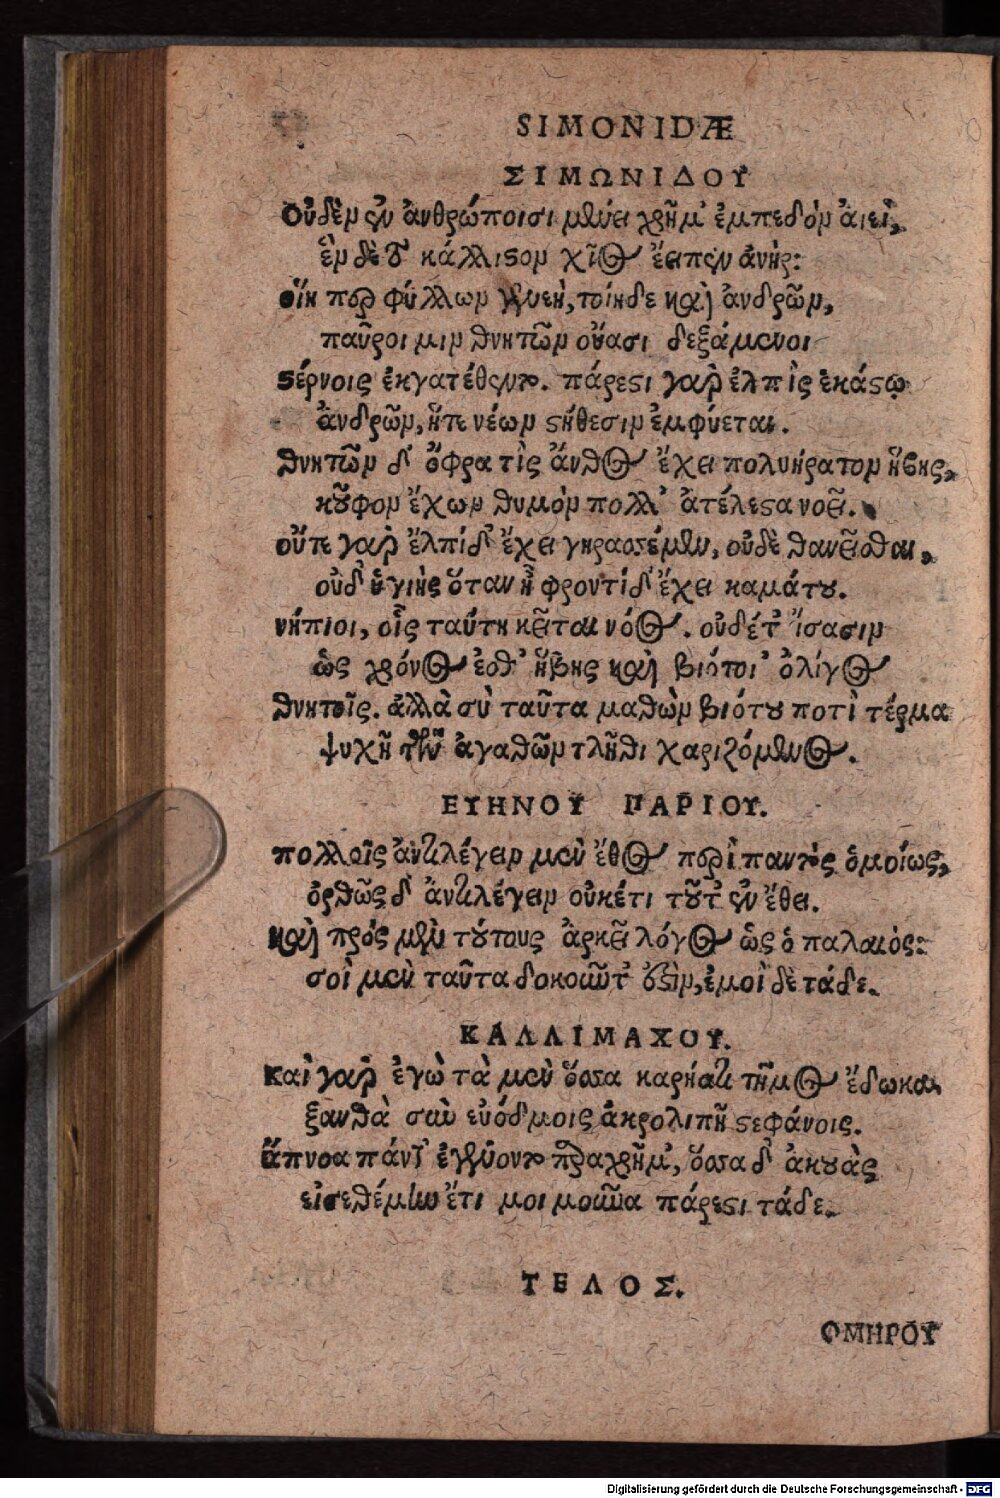 SIMONIDÆ
ΣΙΜΩΝΙΔΟΥ
Οὐδὲν ἐν ἀνθρώποισι μένει χρῆμ' ἔμπεδον ἀιεί,
ἓν δὲ τὸ κάλλιστον χῖος ἔειπεν ἀνήρ:
οἵη περ φύλλων γενεή, τοίηδε καὶ ἀνδρῶν,
παῦροι μιν θνητῶν οὔασι δεξάμενοι
στέρνοις ἐγκατέθεντο. πάρεστι γὰρ ἐλπὶς ἑκάστῳ
ἀνδρῶν, ἥτε νέων στήθεσιν ἐμφύεται.
θνητῶν δ' ὄφρα τὶς ἄνθος ἔχει πολυήρατον ἥβης,
κοῦφον ἔχων θυμὸν πολλ' ἀτέλεστα νοεῖ.
οὔτε γὰρ ἐλπίδ' ἔχει γηρασσέμεν, οὐδὲ θανεῖσθαι,
οὐδ' ὑγιὴς ὅταν ᾖ φροντίδ' ἔχει καμάτου.
νήπιοι, οἷς ταύτη κεῖται νόος. οὐδέτ' ἴσασιν
ὡς χρόνος ἐσθ' ἥβης καὶ βιότοι' ὀλίγος
θνητοῖς. ἀλλὰ σὺ ταῦτα μαθὼν βιότου ποτὶ τέρμα
ψυχῇ τῶν ἀγαθῶν τλῆθι χαριζόμενος.
ΕΥΗΝΟΥ ΠΑΡΙΟΥ.
πολλοῖς ἀντιλέγειν μὲν ἔθος περὶ παντὸς ὁμοίως,
ὀρθῶς δ' ἀντιλέγειν οὐκέτι τοῦτ' ἐν ἔθει.
καὶ πρὸς μὲν τούτους ἀρκεῖ λόγος ὡς ὁ παλαιός:
σοὶ μὲν ταῦτα δοκοῦντ' ἐστὶν, ἐμοὶ δὲ τάδε.
ΚΑΛΛΙΜΑΧΟΥ.
Καὶ γὰρ ἐγὼ τὰ μὲν ὅσσα καρήατι τῆμος ἔδωκα
ξανθὰ σὺν εὐόδμοις ἁκρολιπῆ στεφάνοις.
ἄπνοα πάντ' ἐγένοντο παραχρῆμ', ὅσσα δ' ἀκουὰς
εἰσεθέμην ἔτι μοι μοῦνα πάρεστι τάδε.
ΤΕΛΟΣ.
ΟΜΗΡΟΥ
Digitalisierung gefördert durch die Deutsche Forschungsgemeinschaft - DFG